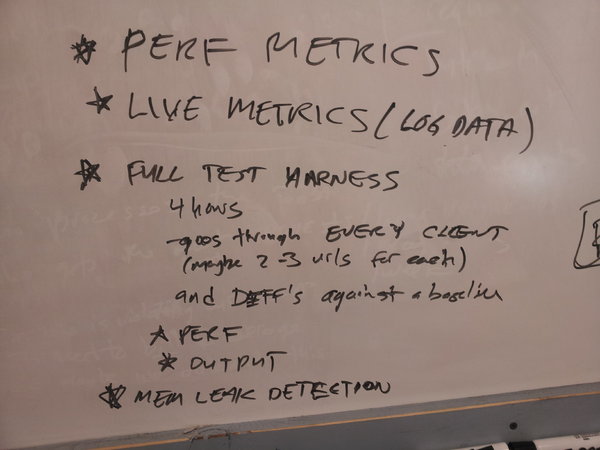 * PERF METRICS
* LIVE METRICS (LOG DATA)
* FULL TEST HARNESS
4 hours
- goes through EVERY CLIENT
(maybe 2-3 urls for each)
and DIFF's against a baseline
* PERF
* OUTPUT
* MEM LEAK DETECTION